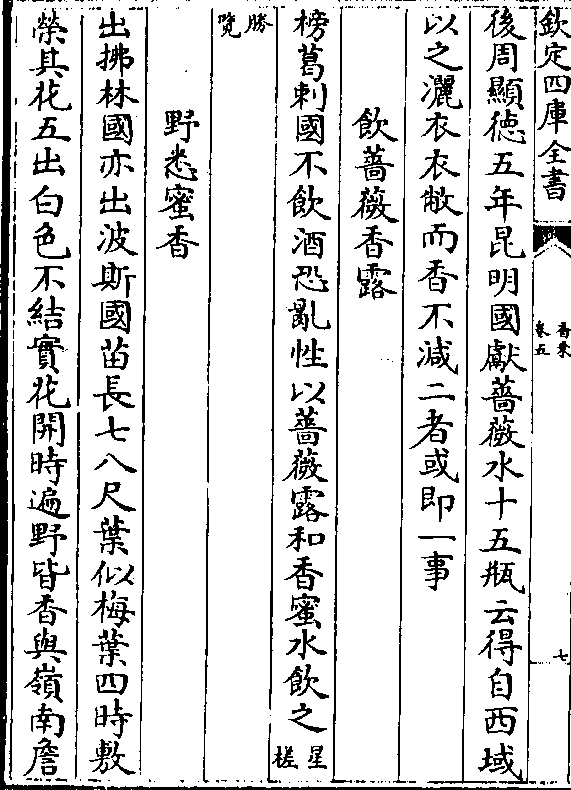 欽定四庫全書
香乘
卷五
七
後周顯德五年昆明國獻薔薇水十五瓶云得自西域
以之灑衣衣敝而香不減二者或即一事
飲薔薇香露
榜葛剌國不飲酒恐亂性以薔薇露和香蜜水飲之星槎
勝覽
野悉蜜香
出拂林國亦出波斯國苗長七八尺葉似梅葉四時敷
榮其花五出白色不結實花開時遍野皆香與嶺南詹